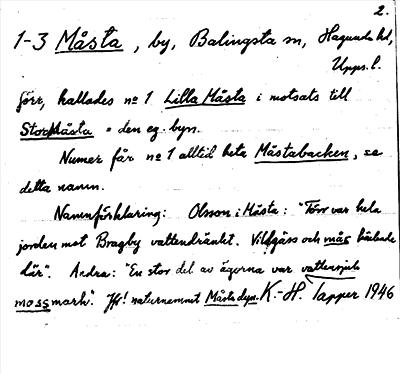 2.
1-3 Måsta, by, Balingsta sn, Hagunda hd,
Upps. l.
förr, kallades nº 1 Lilla Måsta i motsats till
Stormåsta = den eg. byn.
Numer får nº 1 alltid heta Måstabacken, se
detta namn.
Namnförklaring: Olsson i Måsta: "Förr var hela
jorden mot Bragby vattendränkt. Vildgäss och mås häckade
där". Andra: "En stor del av ägorna var vattensjuk
mossmark". Jfr! naturnamnet Måstadyn. K.-H. Tapper 1946